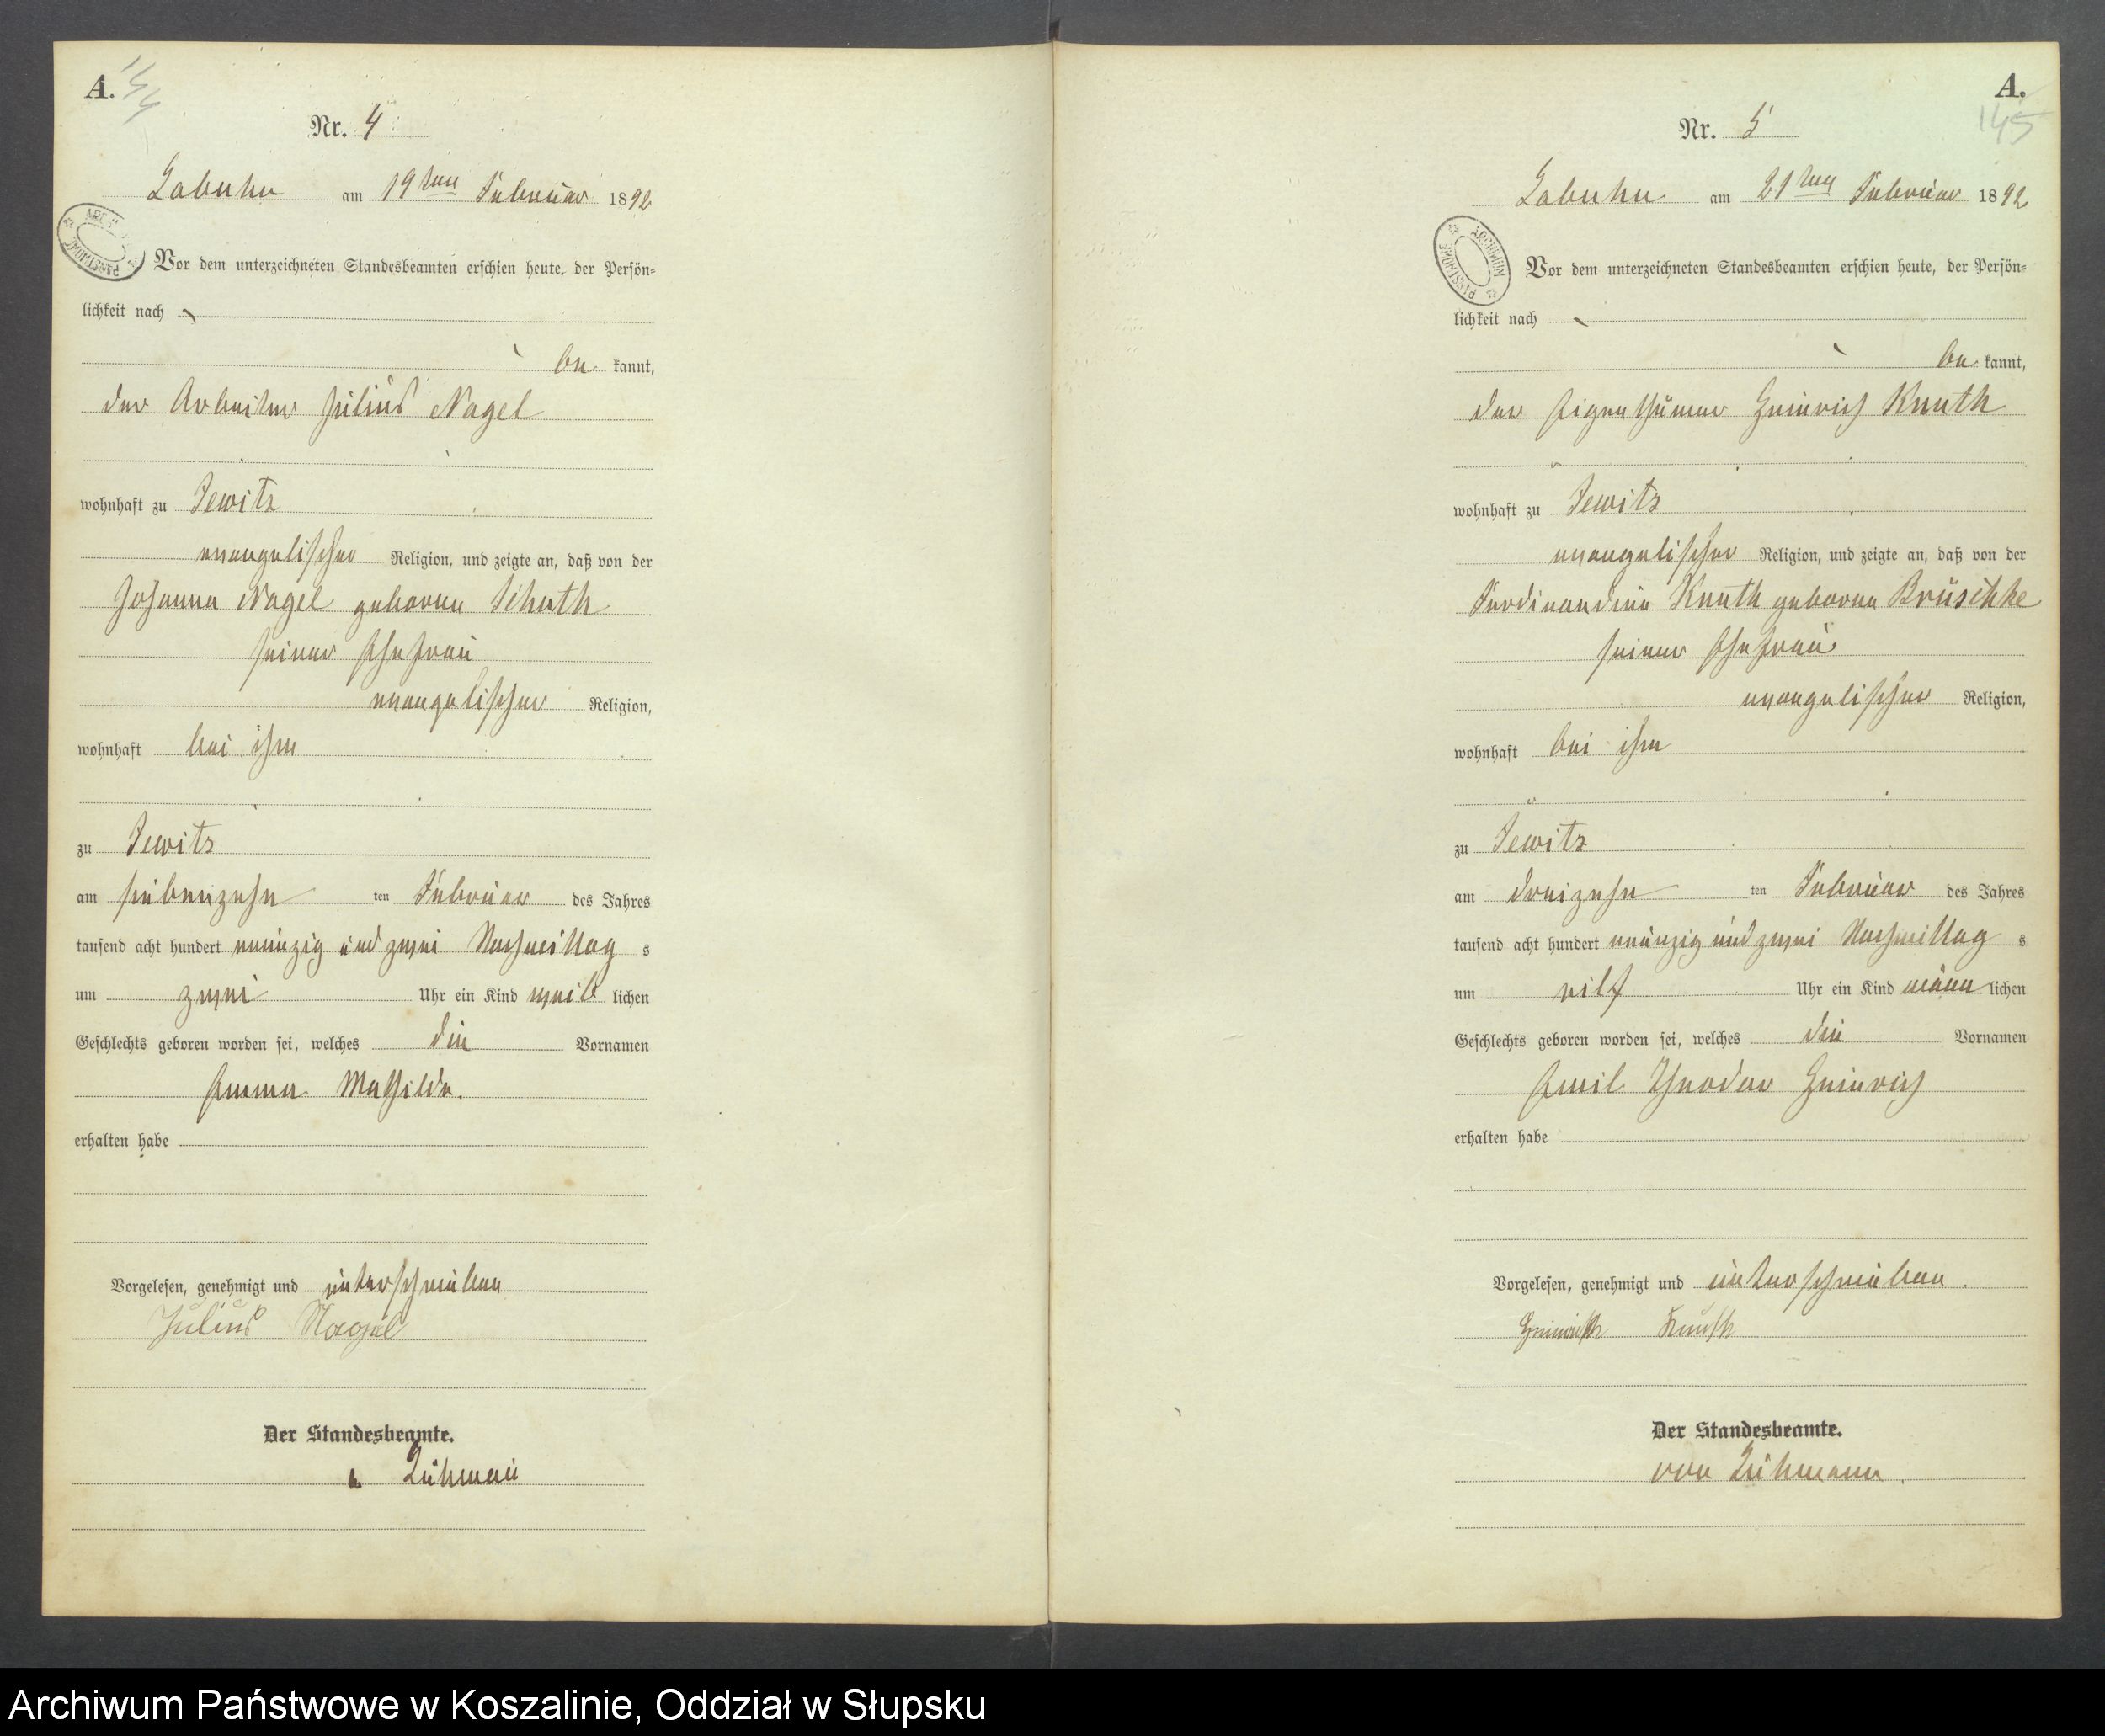 A.
144
Nr. 4
Labuhn am 19ten Februar 1892
Vor dem unterzeichneten Standesbeamten erschien heute, der Persön=
lichkeit nach
be kannt,
der Arbeiter Julius Nagel
wohnhaft zu Jewitz
evangelischer Religion, und zeigte an, daß von der
Johanna Nagel geborene Schuth
seiner Ehefrau
evangelischer Religion,
wohnhaft bei ihm
zu Jewitz
am siebenzehn ten Februar des Jahres
tausend acht hundert neunzig und zwei Nachmittag s
um zwei Uhr ein Kind weib lichen
Geschlechts geboren worden sei, welches die Vornamen
Emma Mathilde.
erhalten habe
Vorgelesen, genehmigt und unterschrieben
Julius Nagel
Der Standesbeamte.
A.
145
Nr. 5
Labuhn am 21ten Februar 1892
ARCHIWUM PAŃSTWOWE
Vor dem unterzeichneten Standesbeamten erschien heute, der Persön=
lichkeit nach
be kannt,
der Eigenthümer Heinrich Knuth
wohnhaft zu Jewitz
evangelischer Religion, und zeigte an, daß von der
Ferdinandine Knuth geborene Brüschke
seiner Ehefrau
evangelischer Religion,
wohnhaft bei ihm
zu Jewitz
am dreizehn ten Februar des Jahres
tausend acht hundert neunzig und zwei Nachmittag s
um eilf Uhr ein Kind männ lichen
Geschlechts geboren worden sei, welches die Vornamen
Emil Theodor Heinrich
erhalten habe
Vorgelesen, genehmigt und unterschrieben.
Heinrich Knuth
Der Standesbeamte.
von
Archiwum Państwowe w Koszalinie, Oddział w Słupsku